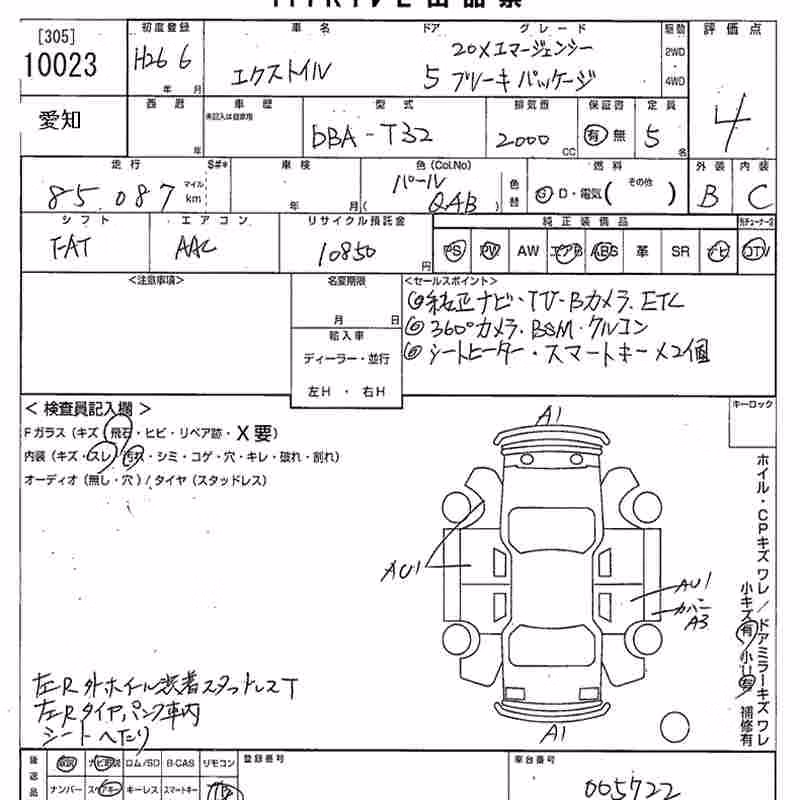 [305]
10023
初度登録
H26 6
年 月
車名
エクストレイル
ドア
5
グレード
20Xエマージェンシー
ブレーキパッケージ
駆動
2WD
4WD
評価点
4
愛知
西暦
年
車歴
未記入は自家用
型式
DBA-T32
排気量
2000
CC
保証書
有 無
定員
5
名
走行
85,087
マイル
km
S#*
車検
年 月(
色(Col.No)
パール
QAB
)
色替
燃料
G D・電気( その他 )
外装
B
内装
C
シフト
FAT
エアコン
AAC
リサイクル預託金
10850
円
純正装備品
PS PW AW エアB ABS 革 SR ナビ
DTV
<注意事項>
名変期限
月 日
輸入車
ディーラー・並行
左H ・ 右H
<セールスポイント>
◎純正ナビ・TV・Bカメラ.ETC
◎360°カメラ.BSM・クルコン
◎シートヒーター・スマートキー×2個
< 検査員記入欄 >
Fガラス(キズ・飛石・ヒビ・リペア跡・X要)
内装(キズ・スレ・汚れ・シミ・コゲ・穴・キレ・破れ・割れ)
オーディオ(無し・穴)/タイヤ(スタッドレス)
キーロック
A1
AU1
AU1
カバーニ
A3
A1
ホイル・CPキズ ワレ/ドアミラーキズ ワレ
小キズ有 小U有 補修有
左R外ホイル装着スタッドレスT
左Rタイヤパンク車内
シートへたり
後送品
取説 ナビ取説 ロム/SD B-CAS リモコン
ナンバー スペアキー キーレス スマートキー
登録番号
車台番号
005722